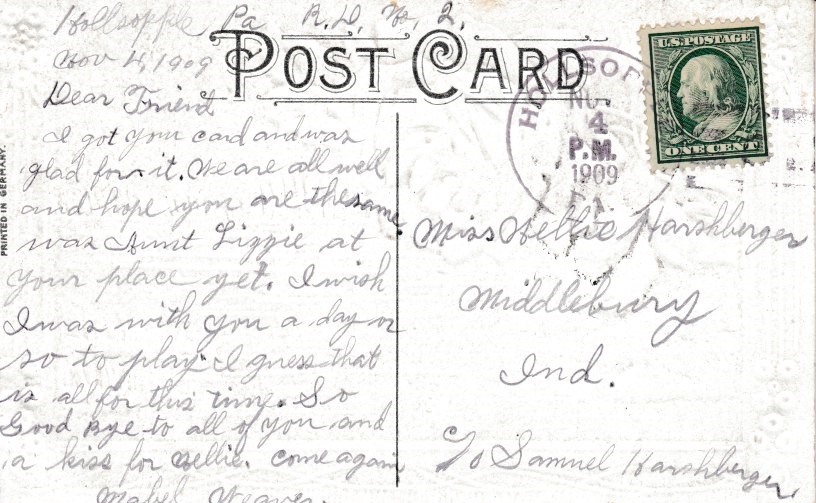 Hollsopple, Pa R.D. No. 2.
Nov 4, 1909
POST CARD
Dear Friend
I got your card and was
glad for it. We are all well
and hope you are the same.
was Aunt Lizzie at
your place yet. I wish
I was with you a day or
so to play. I guess that
is all for this time. So
Good Bye to all of you and
a kiss for Nellie. come again
Mabel Weaver.
PRINTED IN GERMANY.
NOV
4
P.M.
1909
PA.
U.S. POSTAGE
ONE CENT
Miss Nellie Harshberger
Middlebury
Ind.
c/o Samuel Harshberger